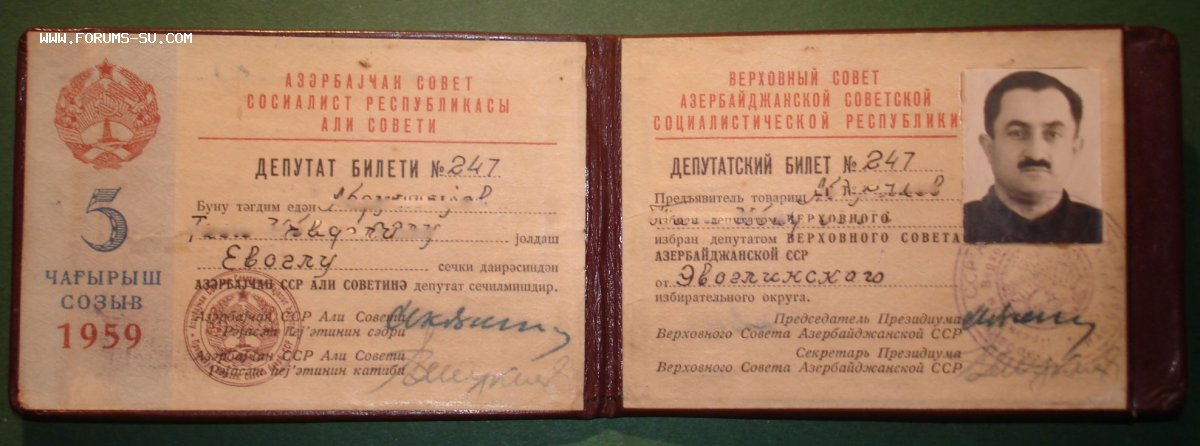 www.FORUMS-SU.COM
5
ЧАҒЫРЫШ
СОЗЫВ
1959
АЗӘРБАЈҸАН СОВЕТ
СОСИАЛИСТ РЕСПУБЛИКАСЫ
АЛИ СОВЕТИ
ДЕПУТАТ БИЛЕТИ № 247
Буну тәгдим едән
јолдаш
Евоглу сечки даирәсиндән
АЗӘРБАЈҸАН ССР АЛИ СОВЕТИНӘ депутат сечилмишдир.
Азәрбајҹан ССР Али Совети
Рәјасәт һеј'әтинин сәдри
Азәрбајҹан ССР Али Совети
Рәјасәт һеј'әтинин катиби
ВЕРХОВНЫЙ СОВЕТ
АЗЕРБАЙДЖАНСКОЙ СОВЕТСКОЙ
СОЦИАЛИСТИЧЕСКОЙ РЕСПУБЛИКИ
ДЕПУТАТСКИЙ БИЛЕТ № 247
Предъявитель товарищ
избран депутатом ВЕРХОВНОГО
избран депутатом ВЕРХОВНОГО СОВЕТА
АЗЕРБАЙДЖАНСКОЙ ССР
от Эвоглинского
избирательного округа.
Председатель Президиума
Верховного Совета Азербайджанской ССР
Секретарь Президиума
Верховного Совета Азербайджанской ССР